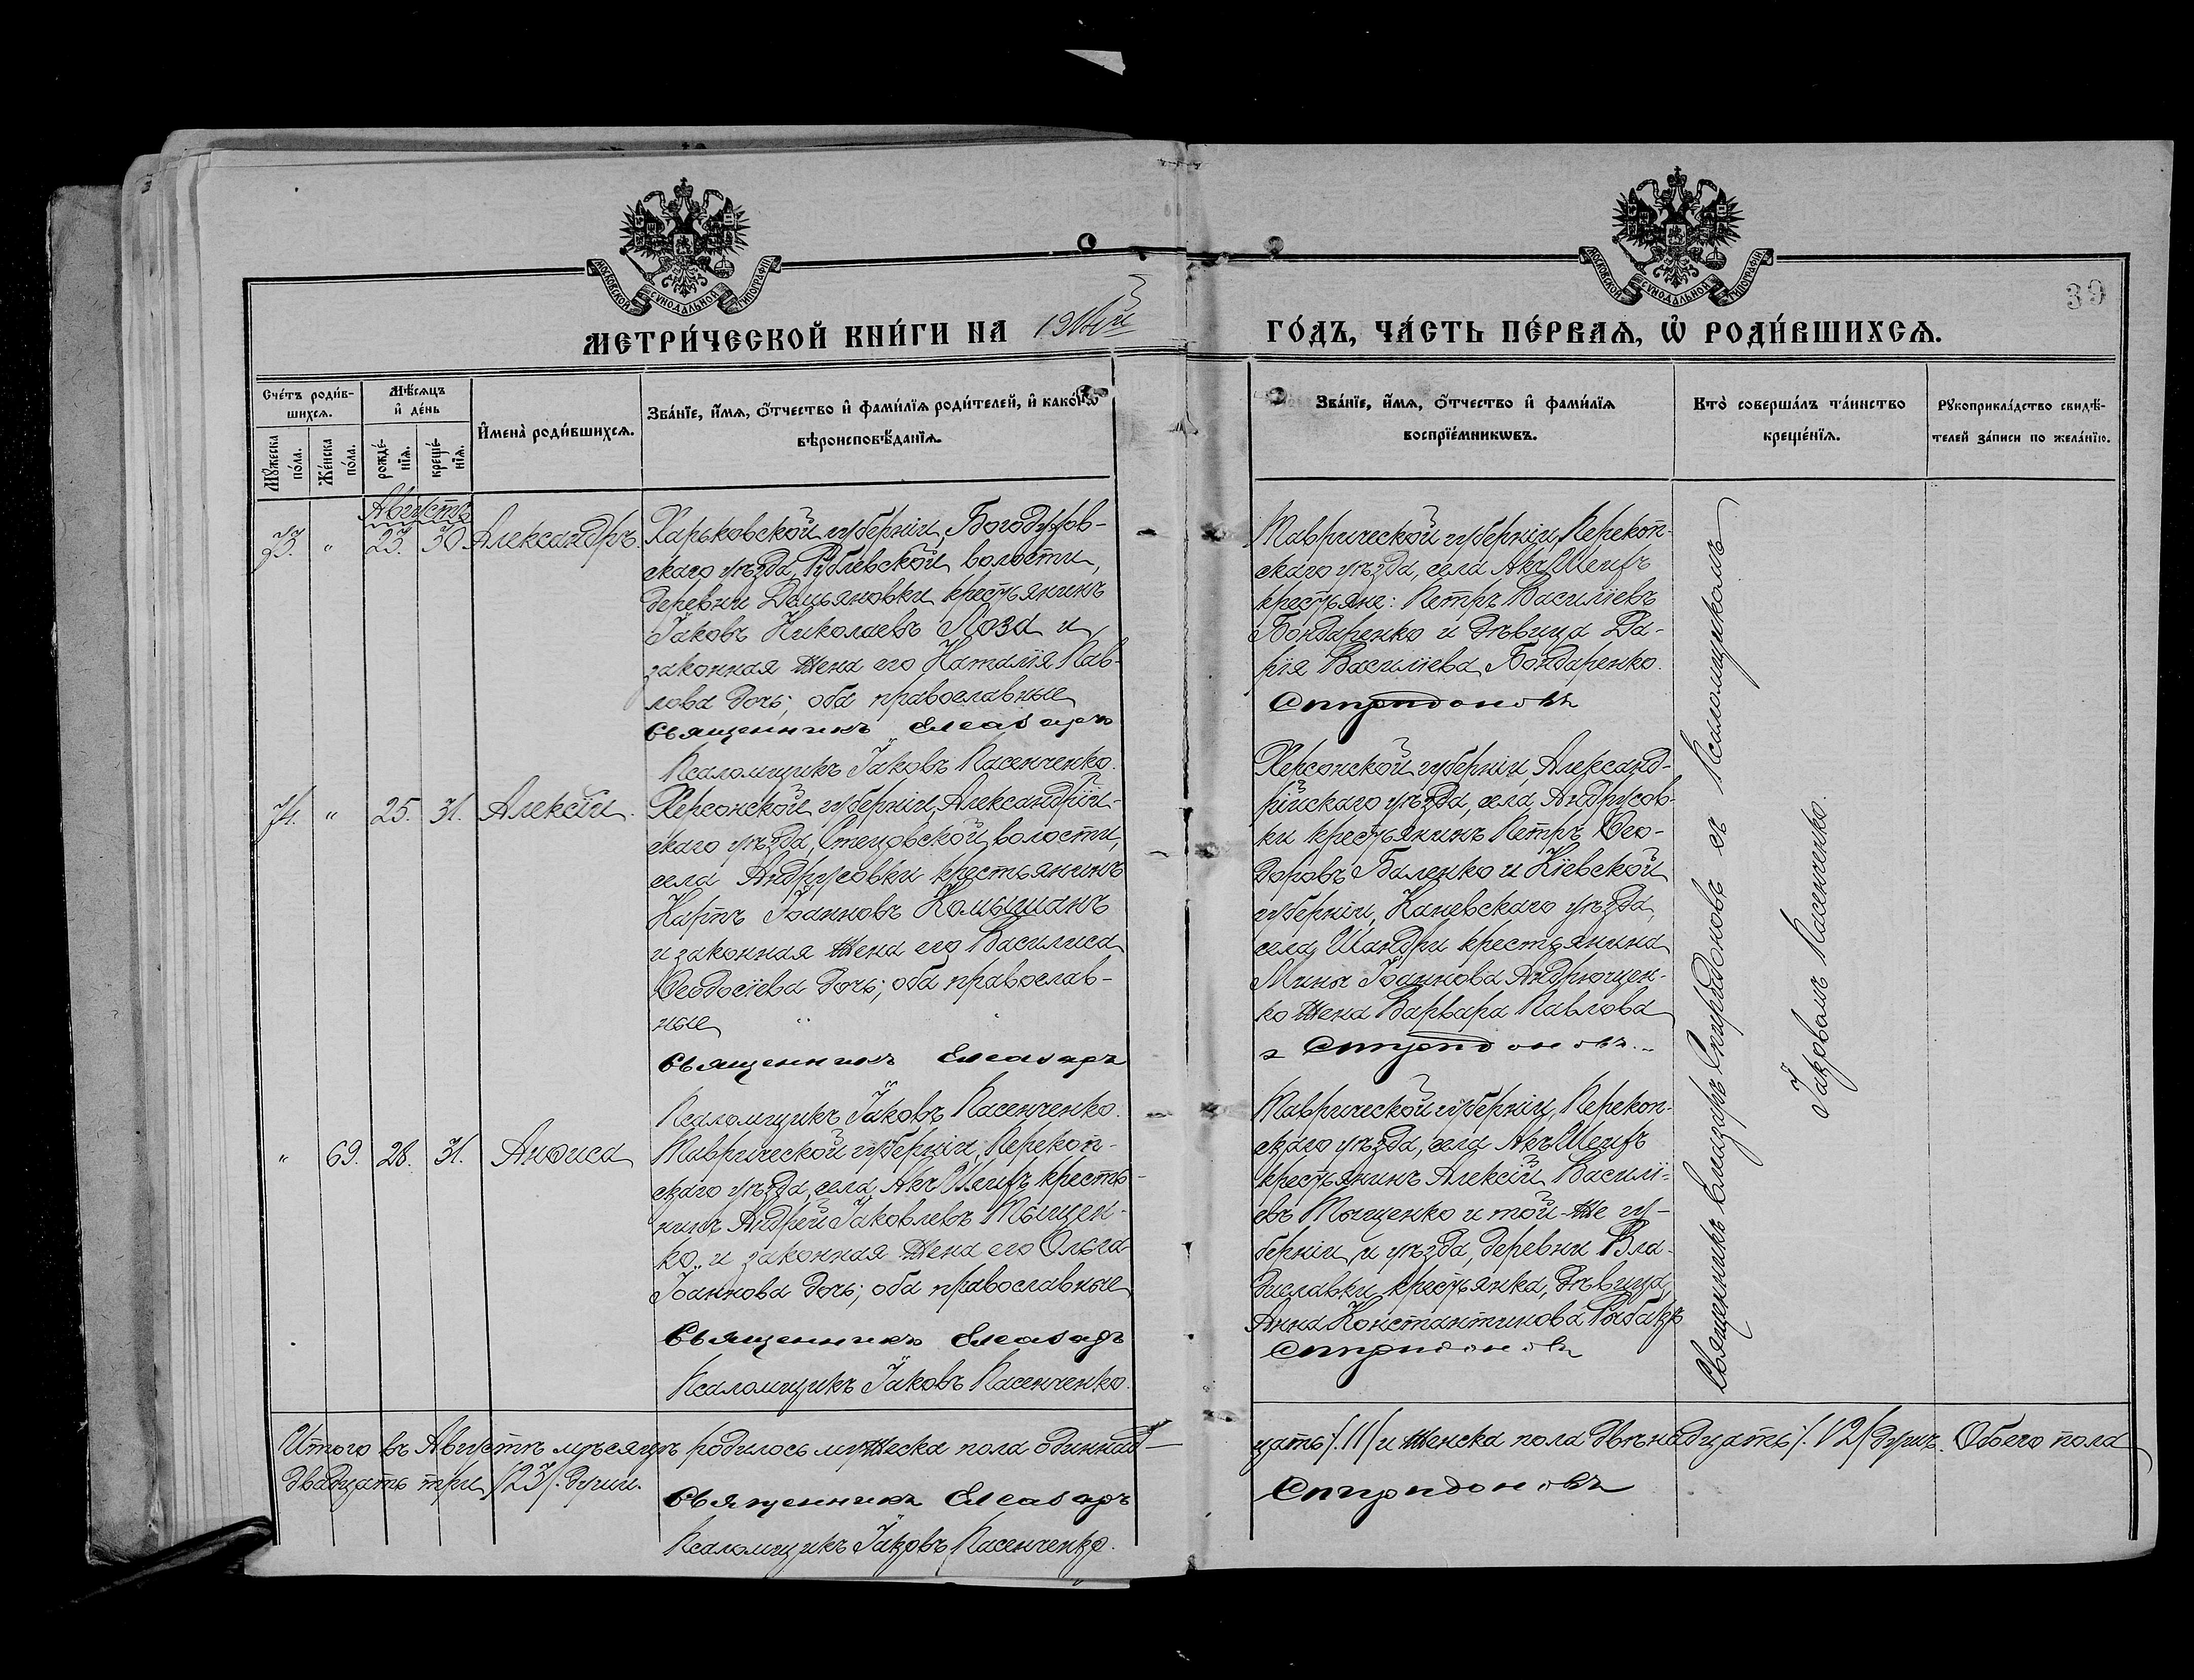 МОСКОВСКОЙ СѴНОДАЛЬНОЙ ТИПОГРАФІИ
МОСКОВСКОЙ СѴНОДАЛЬНОЙ ТИПОГРАФІИ
39
МЕТРИ́ЧЕСКОЙ КНИ́ГИ НА
ГО́ДЪ, ЧА́СТЬ ПЕ́РВАѦ, Ѡ҆ РОДИ́ВШИХСѦ.
Сче́тъ роди́в-
шихсѧ.
Мѣ́сѧцъ
и҆ де́нь
И҆мена̀ роди́вшихсѧ.
Зва́нїе, и҆́мѧ, ѻ҆́тчество и҆ фами́лїѧ роди́телей, и҆ како́гѡ
вѣроисповѣ́данїѧ.
Мꙋ́жеска
по́ла.
Же́нска
по́ла.
рожде́-
нїѧ.
креще́-
нїѧ.
Зва́нїе, и҆́мѧ, ѻ҆́тчество и҆ фами́лїѧ
воспрїе́мникѡвъ.
Кто̀ соверша́лъ та́инство
креще́нїѧ.
Рꙋкоприкла́дство свидѣ́-
телей за́писи по жела́нїю.
Августъ
73. " 23. 30. Александръ.
Харьковской губерніи, Богодухов-
скаго уѣзда, Рублевской волости,
деревни Демьяновки крестьянинъ
Іаковъ Николаевъ Лоза и
законная жена его Наталія Пав-
лова дочь; оба православные
Священникъ Елеазаръ
Псаломщикъ Іаковъ Пасенченко.
Таврической губерніи, Перекоп-
скаго уѣзда, села Акъ Шеихъ
крестьяне: Петръ Василіевъ
Бондаренко и дѣвица Да-
рія Василіева Бондаренко.
Спиридоновъ
74. " 25. 31. Алексій.
Херсонской губерніи, Александрій-
скаго уѣзда, Стецовской волости,
села Андрусовки крестьянинъ
Карпъ Іоанновъ Комышанъ
и законная жена его Василиса
Ѳеодосіева дочь; оба православ-
ные
Священникъ Елеазаръ
Псаломщикъ Іаковъ Пасенченко.
Херсонской губерніи, Александ-
рійскаго уѣзда, села Андрусов-
ки крестьянинъ Петръ Ѳео-
доровъ Баленко и Кіевской
губерніи, Каневскаго уѣзда,
села Шандри крестьянина
Мины Іоаннова Андрющен-
ко жена Варвара Павлова
Спиридоновъ
" 69. 28. 31. Анѳиса
Таврической губерніи, Перекоп-
скаго уѣзда, села Акъ Шеихъ крестья-
нинъ Андрей Іаковлевъ Тыщен-
ко и законная жена его Ольга
Іоаннова дочь; оба православные
Священникъ Елеазаръ
Псаломщикъ Іаковъ Пасенченко.
Таврической губерніи, Перекоп-
скаго уѣзда, села Акъ Шеихъ
крестьянинъ Алексій Василі-
евъ Тыщенко и той-же гу-
берніи и уѣзда, деревни Вла-
диславки крестьянка, дѣвица,
Анна Константинова
Спиридоновъ
Священникъ Елеазаръ Спиридоновъ съ Псаломщикомъ
Іаковомъ Пасенченко.
Итого въ Августѣ мѣсяцѣ родилось мужеска пола одиннад-
цать /.11/ и женска пола двѣнадцать /.12/ душъ. Обоего пола
двадцать три /23/. души.
Священникъ Елеазаръ
Спиридоновъ
Псаломщикъ Іаковъ Пасенченко.